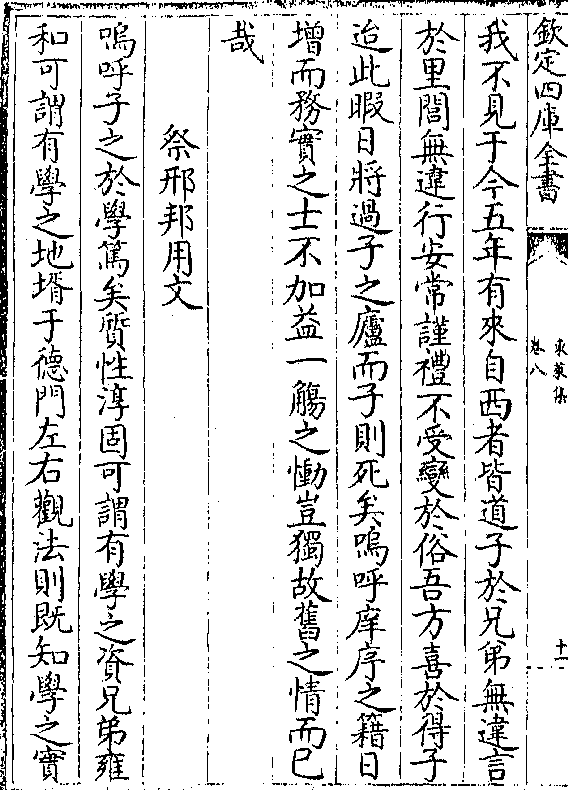 欽定四庫全書
東萊集
卷八
十一
我不見于今五年有來自西者皆道子於兄弟無違言
於里閭無違行安常謹禮不受變於俗吾方喜於得子
迨此暇日將過子之廬而子則死矣嗚呼庠序之籍日
增而務實之士不加益一觴之慟豈獨故舊之情而已
哉
祭邢邦用文
嗚呼子之於學篤矣質性淳固可謂有學之資兄弟雍
和可謂有學之地壻于德門左右觀法則既知學之實